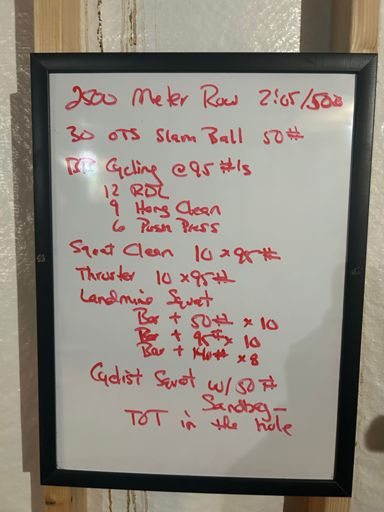 2500 Meter Row 2:05/500
30 OTS Slam Ball 50#
Cycling @ 95 #'s
12 RDL
9 Hang Clean
6 Push Press
Squat Clean 10 x 95#
Thruster 10 x 95#
Landmine Squat
Bar + 50# x 10
Bar + 95# x 10
Bar + 140# x 8
Cyclist Squat w/ 50#
Sandbag -
TOT in the hole